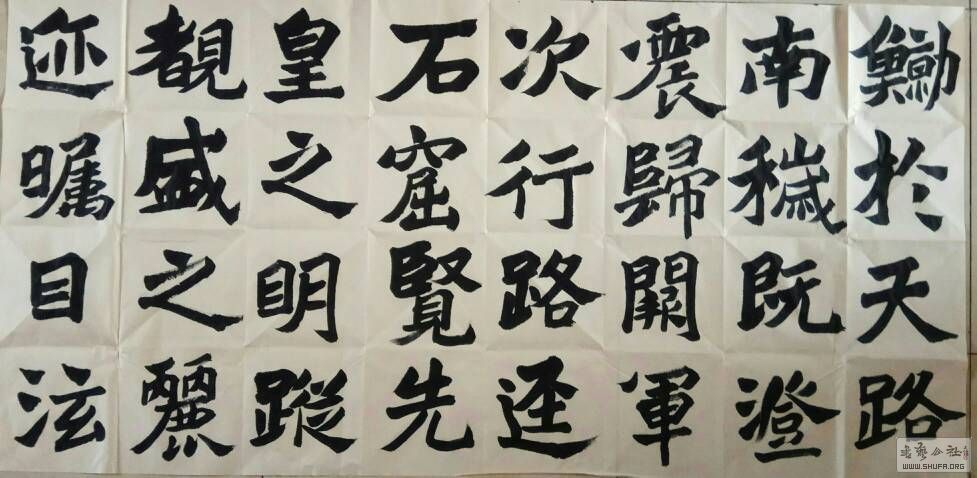 勳於天路
南穢既澄
震歸闕軍
次行路逕
石窟覽先
皇之明蹤
覩盛之麗
迹矚目泫
書藝公社
WWW.SHUFA.ORG